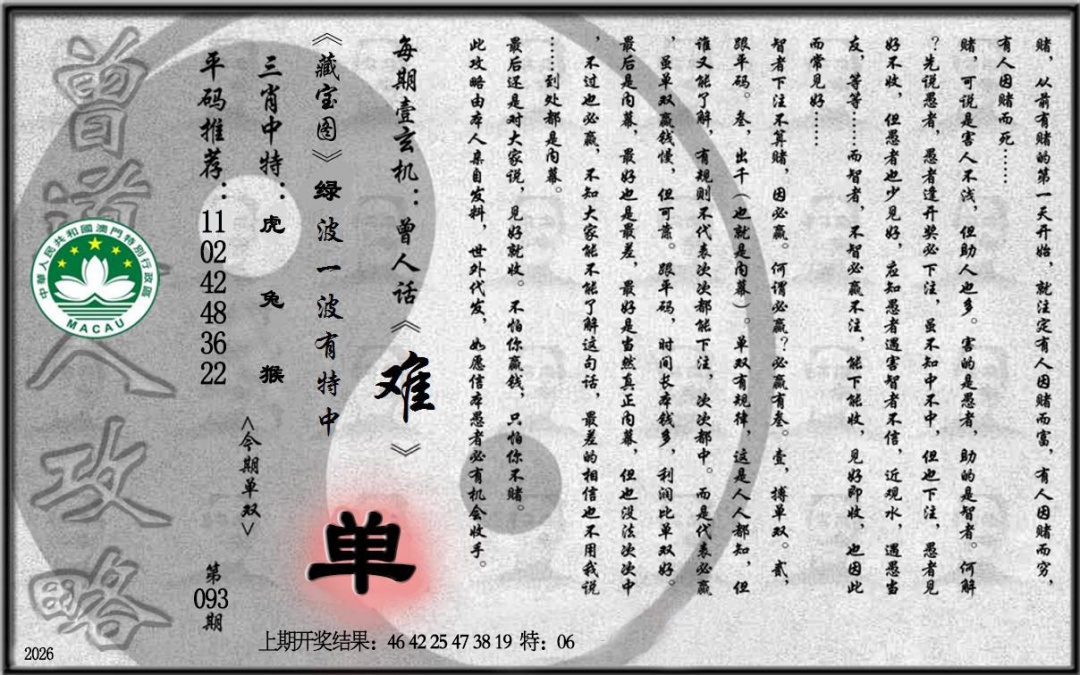 赌，从前有赌的第一天开始，就注定有人因赌而富，有人因赌而穷，
有人因赌而死……
赌，可说是害人不浅，但助人也多。害的是愚者，助的是智者。何解
？先说愚者，愚者逢开奖必下注，虽不知中不中，但也下注，愚者见
好不收，但愚者也少见好，应知愚者遇害智者不信，近观水，遇愚当
友，等等……而智者，不智必赢不注，能下能收，见好即收，也因此
而常见好……
智者下注不算赌，因必赢。何谓必赢？必赢有叁。壹，搏单双。贰，
跟平码。叁，出千（也就是内幕）。单双有规律，这是人人都知，但
谁又能了解，有规则不代表次次都能下注，次次都中。而是代表必赢
，虽单双赢钱慢，但可靠。跟平码，时间长本钱多，利润比单双好。
最后是内幕，最好也是最差，最好是当然真正内幕，但也没法次次中
，不过也必赢，不知大家能不能了解这句话，最差的相信也不用我说
……到处都是内幕。
最后还是对大家说，见好就收。不怕你赢钱，只怕你不赌。
此攻略由本人亲自发料，世外代发，如愿信本愚者必有机会收手。
每期壹玄机：曾人话《难》
《藏宝图》绿波一波有特中
单
三肖中特：虎 兔 猴
<今期单双>
平码推荐：11 02 42 48 36 22
第093期
曾道人攻略
中華人民共和國澳門特別行政區
MACAU
上期开奖结果：46 42 25 47 38 19 特：06
2026